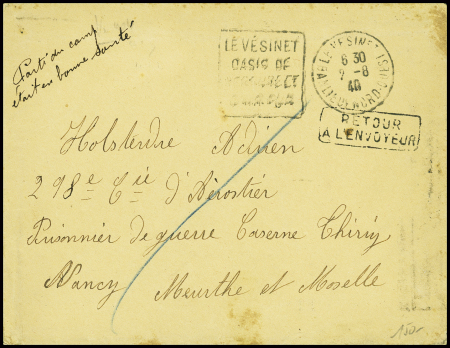 Parti du camp
était en bonne santé
LE VÉSINET
OASIS DE
LE VESINET
6 30
2 -8
40
RETOUR
A L'ENVOYEUR
Holsterdre Adrien
298e Cie d'Aérostier
Prisonnier de guerre Caserne Thiriy
Nancy Meurthe et Moselle
150-